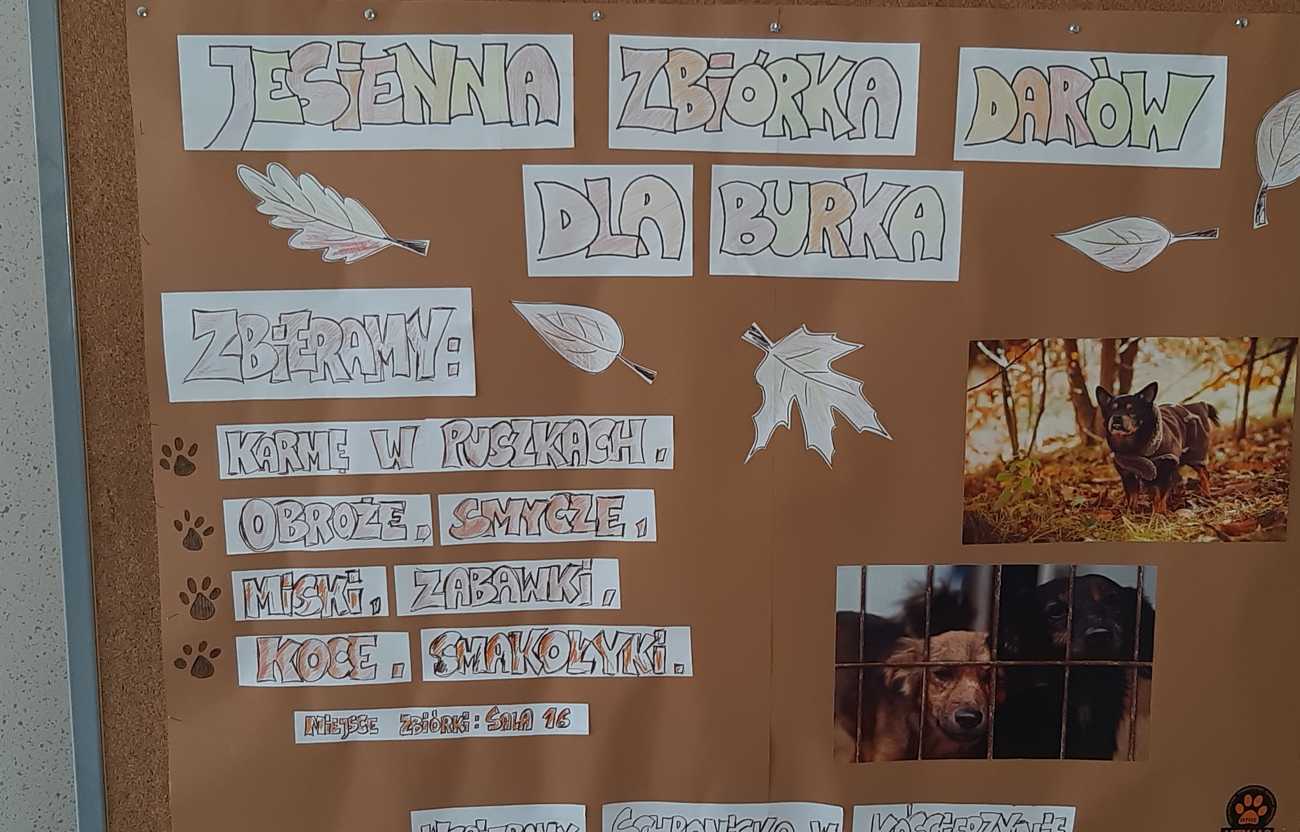 JESIENNA ZBIÓRKA DARÓW
DLA BURKA
ZBIERAMY:
KARMĘ W PUSZKACH,
OBROŻE, SMYCZE,
MISKI, ZABAWKI,
KOCE, SMAKOŁYKI.
MIEJSCE ZBIÓRKI: SALA 16
WSPIERAMY SCHRONISKO W KOŚCIERZYNIE